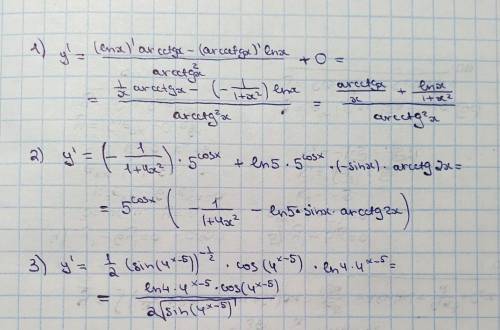 1) y' = ((lnx)' arcctgx - (arcctgx)' lnx) / (arcctg²x) + 0 =
= (1/x arcctgx - (-1/(1+x²)) lnx) / (arcctg²x) = (arcctgx/x + lnx/(1+x²)) / (arcctg²x)
2) y' = (-1/(1+4x²)) · 5^cosx + ln5 · 5^cosx · (-sinx) · arcctg2x =
= 5^cosx · (-1/(1+4x²) - ln5 · sinx · arcctg2x)
3) y' = 1/2 (sin(4^(x-5)))^(-1/2) · cos(4^(x-5)) · ln4 · 4^(x-5) =
= (ln4 · 4^(x-5) · cos(4^(x-5))) / (2√(sin(4^(x-5))))